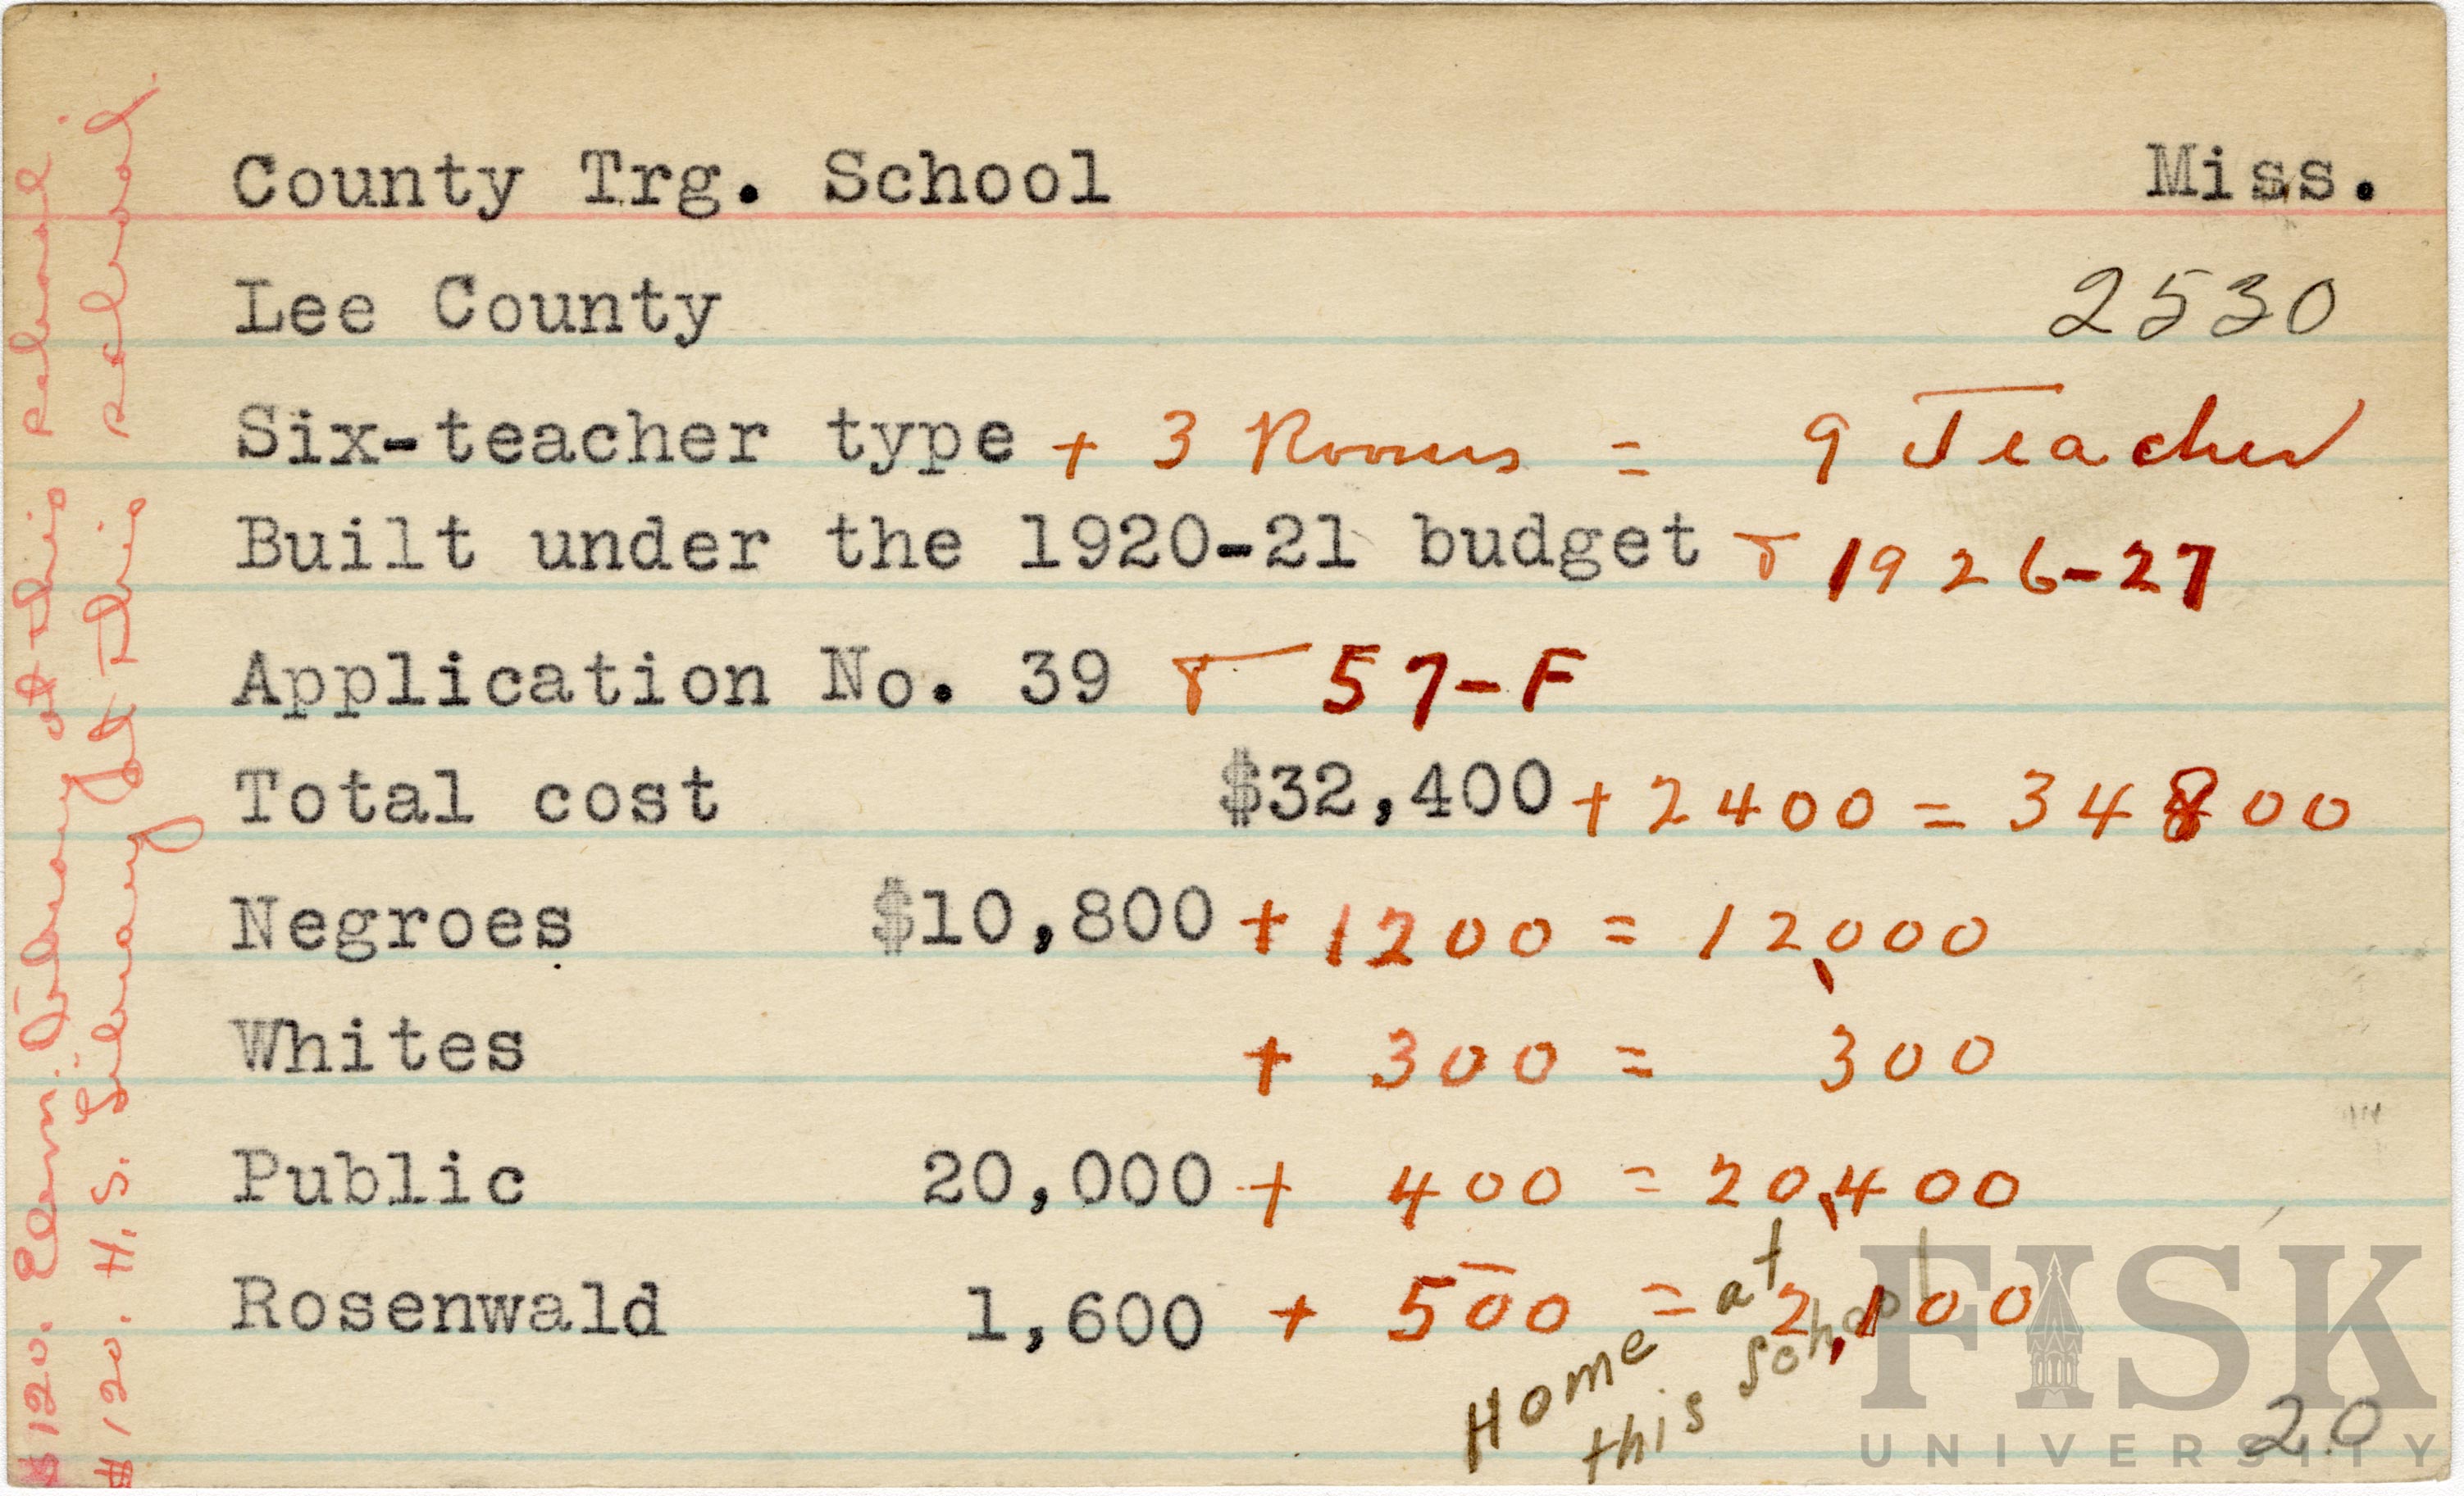 County Trg. School Miss.
Lee County 2530
Six-teacher type + 3 Rooms = 9 Teacher
Built under the 1920-21 budget & 1926-27
Application No. 39 & 57-F
Total cost $32,400 + 2400 = 34800
Negroes $10,800 + 1200 = 12,000
Whites + 300 = 300
Public 20,000 + 400 = 20,400
Rosenwald 1,600 + 500 = 2,100
Home at
this School
20
$120. Elem. Library at this school.
$120. H. S. Library at this school.
FISK
UNIVERSITY